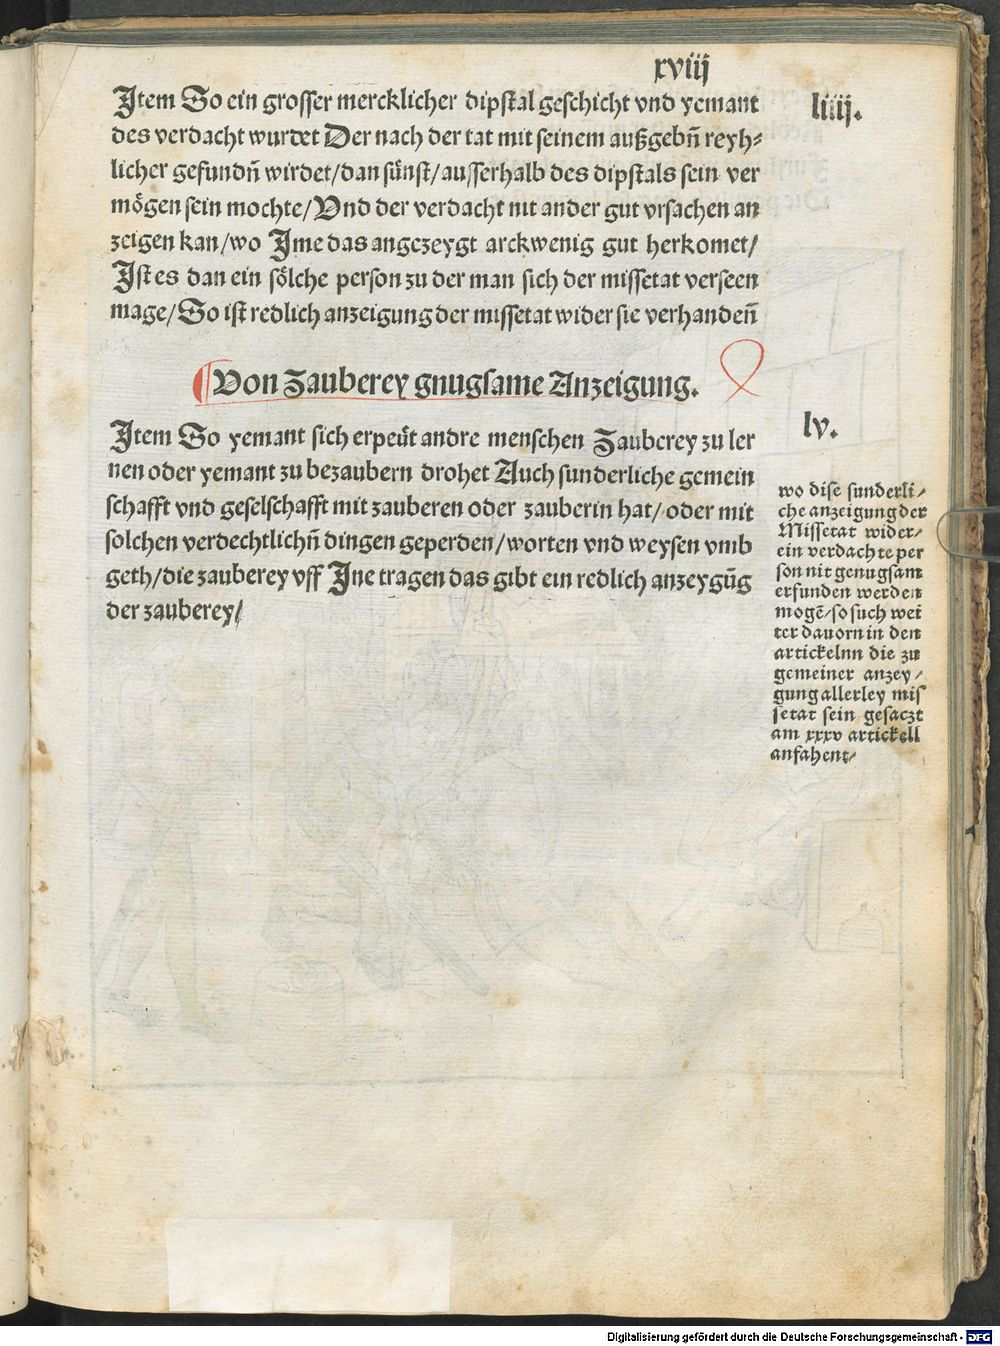 xviij
Item So ein grosser mercklicher dipstal geschicht vnd yemant
liiij.
des verdacht wurdet Der nach der tat mit seinem außgebñ reyh-
licher gefundñ wirdet/dan süͤnst/ausserhalb des dipstals sein ver
mögen sein mochte/Vnd der verdacht nit ander gut vrsachen an
zeigen kan/wo Jme das angezeygt arckwenig gut herkomet/
Jst es dan ein sölche person zu der man sich der missetat verseen
mage/So ist redlich anzeigung der missetat wider sie verhandeñ
Von Zauberey gnugsame Anzeigung.
Jtem So yemant sich erpeüt andre menschen Zauberey zu ler
lv.
nen oder yemant zu bezaubern drohet Auch sunderliche gemein
schafft vnd geselschafft mit zauberen oder zauberin hat/oder mit
solchen verdechtlichñ dingen geperden/worten vnd weysen vmb
geth/die zauberey vff Jne tragen das gibt ein redlich anzeygūg
der zauberey/
wo dise sunderli/
che anzeigung der
Missetat wider/
ein verdachte per
son nit genugsam
erfunden werden
mogē/so such wei
ter dauorn in den
artickelnn die zu
gemeiner anzey/
gung allerley mis
setat sein gesaczt
am xxxv artickell
anfahent/
Digitalisierung gefördert durch die Deutsche Forschungsgemeinschaft - DFG